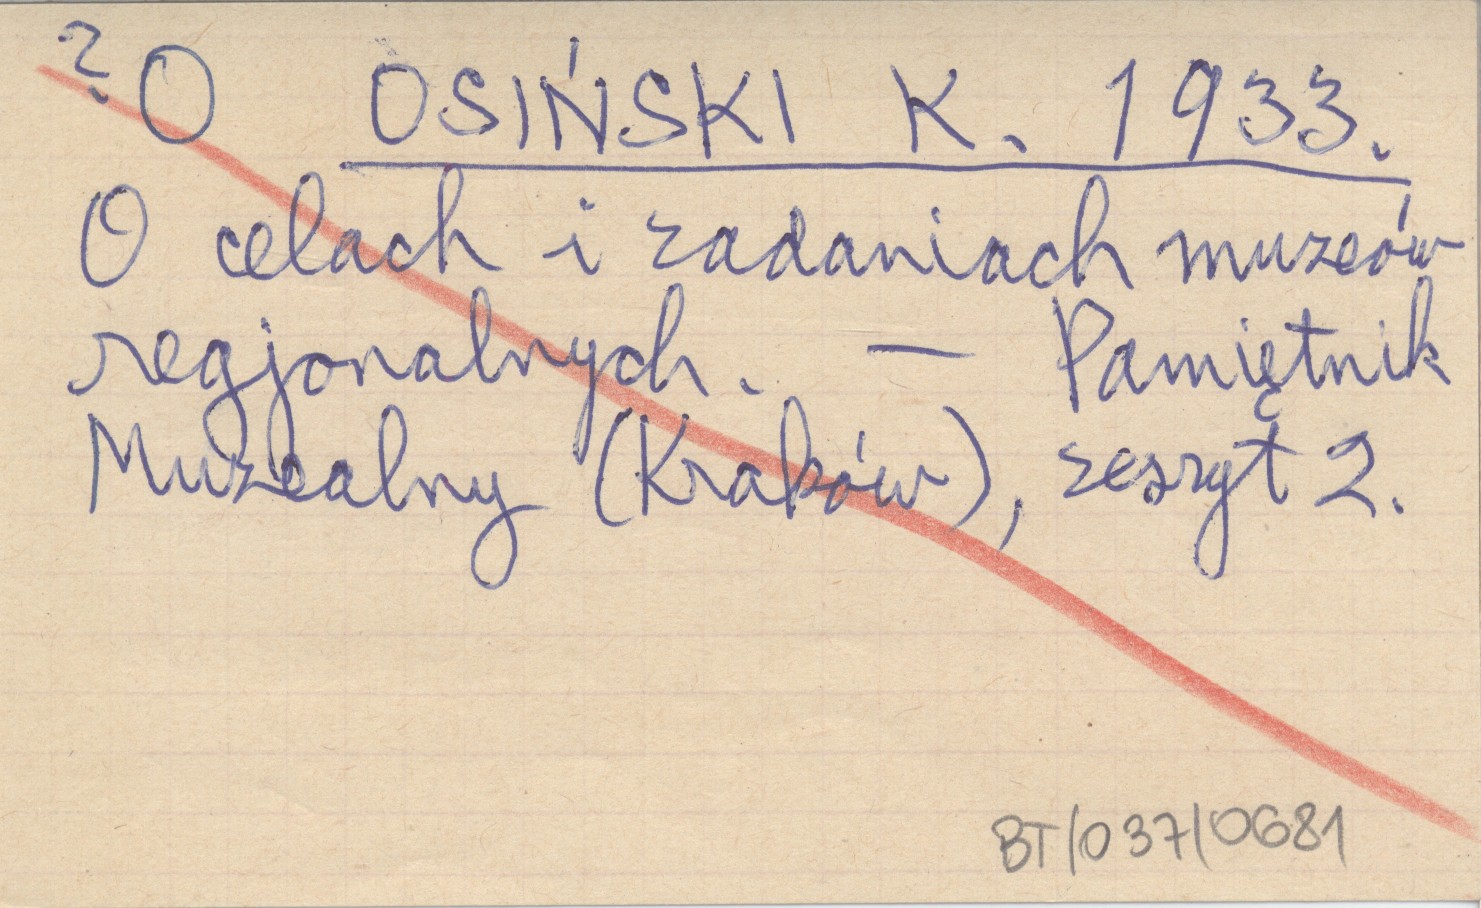 ? O OSIŃSKI K. 1933.
O celach i zadaniach muzeów
regjonalnych. — Pamiętnik
Muzealny (Kraków), zeszyt 2.
BT/037/0681